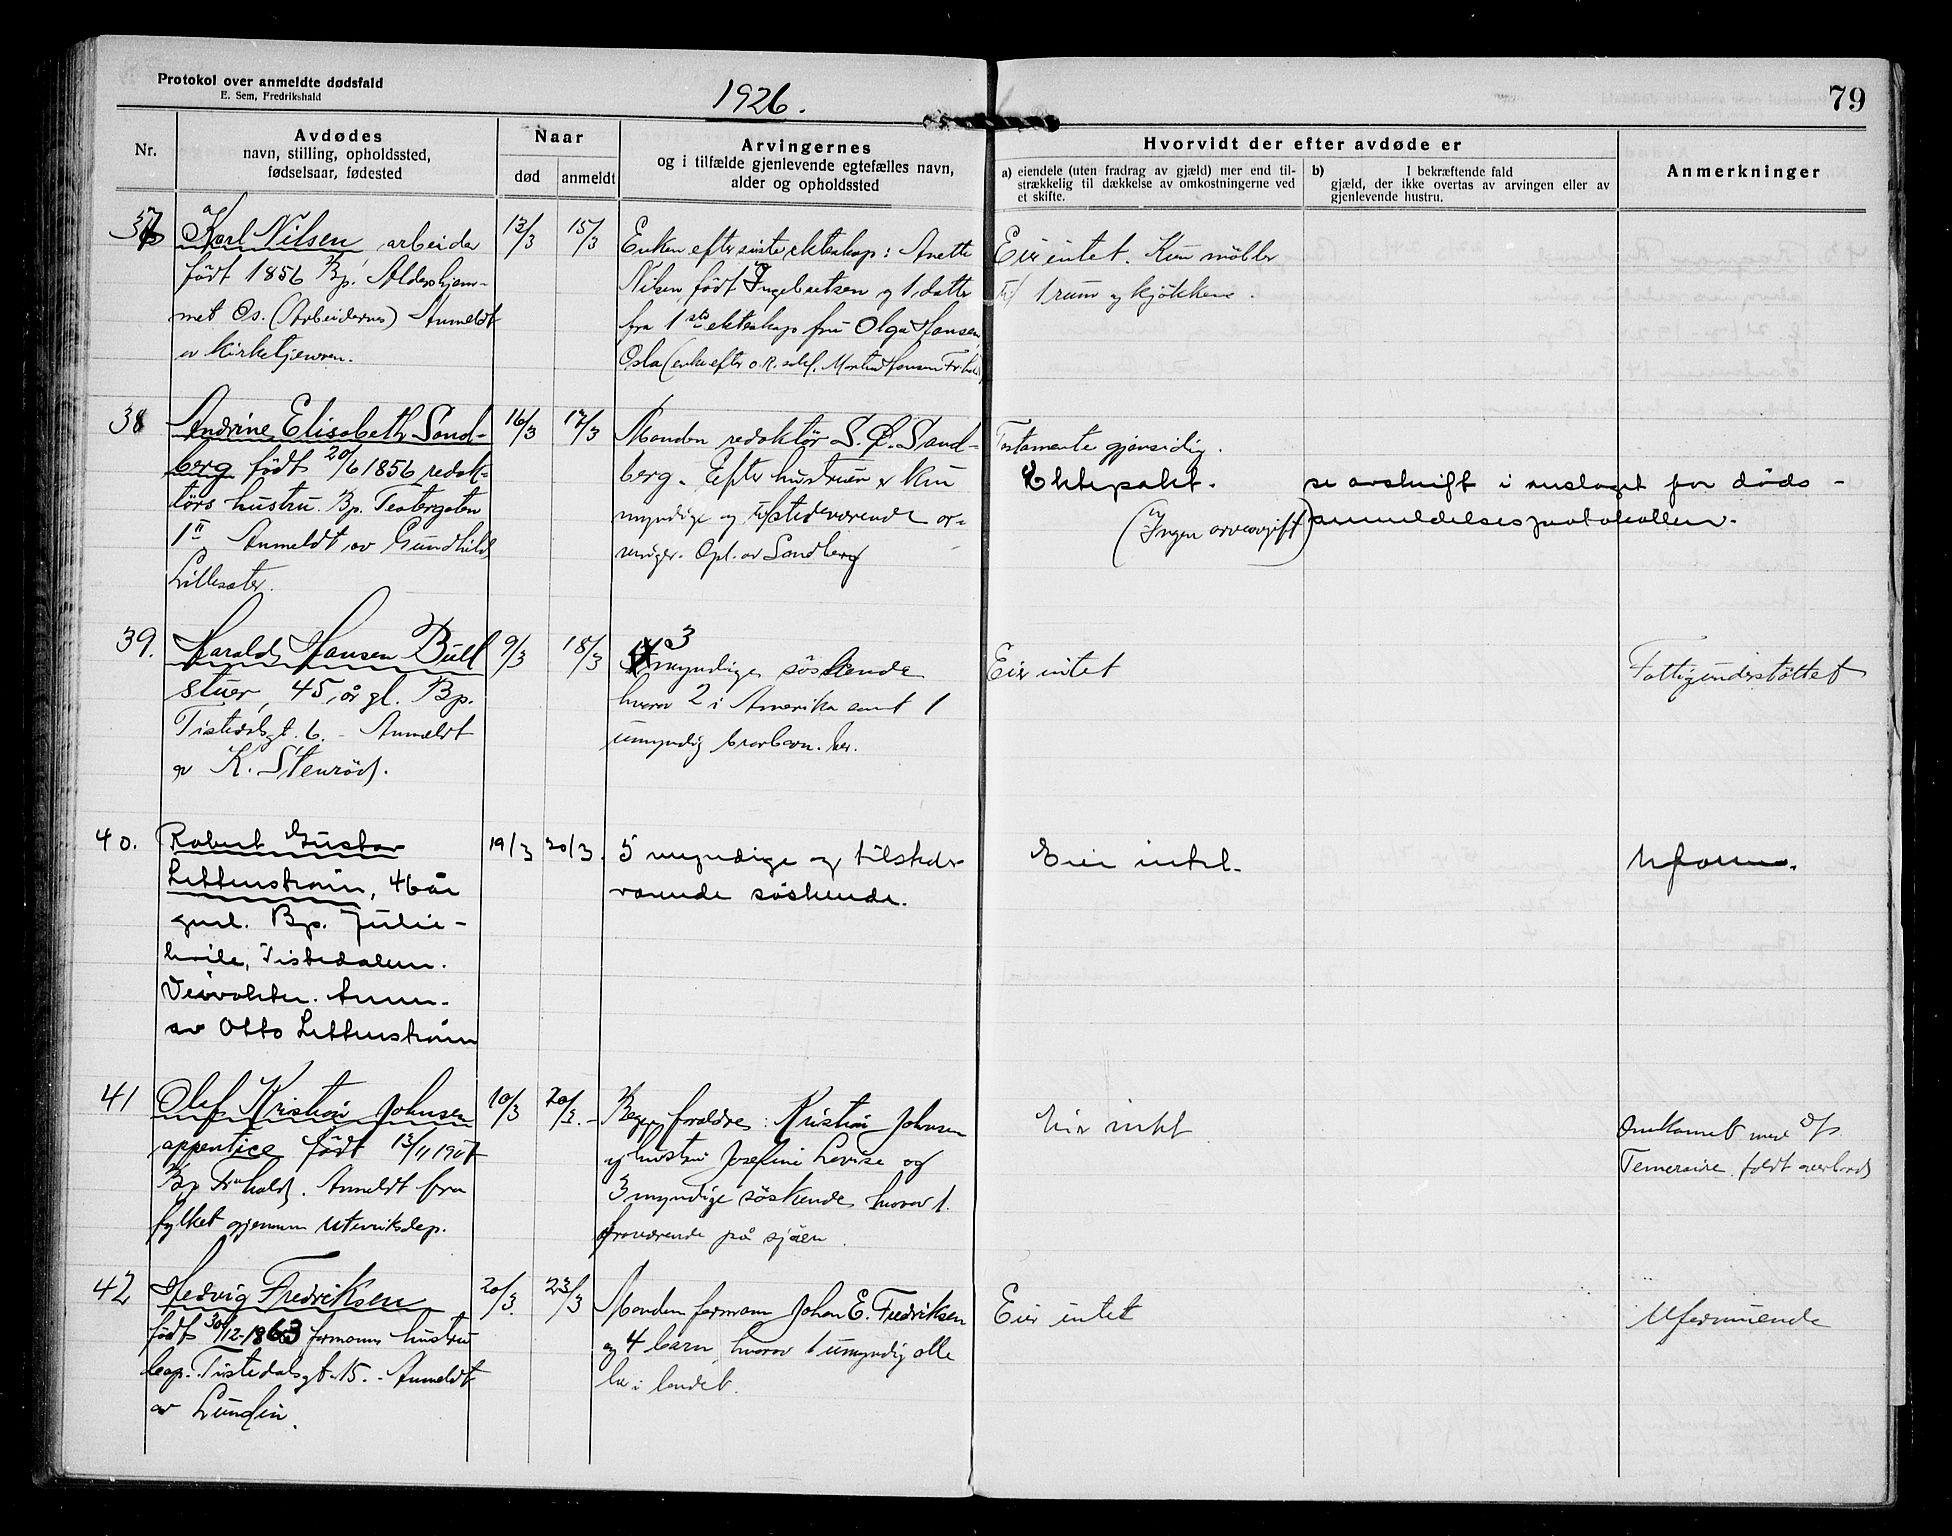 Protokol over anmeldte dødsfald
E. Sem, Fredrikshald
1926.
79
Nr.
Avdødes
navn, stilling, opholdssted,
fødselsaar, fødested
Naar
død
anmeldt
Arvingernes
og i tilfælde gjenlevende egtefælles navn,
alder og opholdssted
Hvorvidt der efter avdøde er
a) eiendele (uten fradrag av gjæld) mer end til-
strækkelig til dækkelse av omkostningerne ved
et skifte.
b) I bekræftende fald
gjæld, der ikke overtas av arvingen eller av
gjenlevende hustru.
Anmerkninger
37
Karl Nilsen arbeider
født 1856 Bp. Aldershjem-
met Os. (Arbeidernes) Anmeldt
av kirketjeneren.
12/3
15/3
Enken efter siste ekteskap: Anette
Nilsen født Ingebretsen og 1 datter
fra 1ste ekteskap fru Olga Hansen
Oslo (enke efter Martin Hansen Fr.hald)
Eier intet. Kun møbler
til 1 rum og kjøkken.
38
Andrine Elisabeth Sand-
berg født 20/6 1856 redak-
tørs hustru. Bp. Teatergaten
1 II Anmeldt av Gundhild
Lillesæter.
16/3
17/3
Manden redaktør S. Ø. Sand-
berg. Efter hustruen er kun
myndige og tilstedeværende ar-
vinger. Opl. av Sandberg
Testamente gjensidig.
Ektepakt.
(Ingen arveavgift)
se avskrift i omslaget for døds-
anmeldelsesprotokollen.
39.
Harald Hansen Bull
stuer, 45 år gl. Bp.
Tistedalsgt. 6. - Anmeldt
av K. Stenrød.
9/3
18/3
3 myndige søskende
hvorav 2 i Amerika samt 1
umyndig brorbarn. her.
Eier intet
Fattigunderstøttet
40.
Robert Gustav
Letterstrøm, 46 år
gml. Bp. Julie-
hvile, Tistedalen.
Veivokter. Anm.
av Otto Letterstrøm
19/3
20/3.
5 myndige og tilstede-
værende søskende.
Eier intet.
Uform.
41
Olaf Kristian Johnsen
apprentice født 13/11 1907
Bp Fr.hald. Anmeldt fra
fylket gjennem utenriksdep.
10/3
20/3.
Begge foreldre: Kristian Johnsen
og hustru Josefine Lovise og
3 myndige søskende hvorav 1
fraværende på sjøen.
Eier intet
Omkommet med D/S
Temeraire. faldt overbord
42
Hedvig Fredriksen
født 30/12-1863 formanns hustru
bop. Tistedalsgt. 15. - Anmeldt
av Lundin.
20/3.
23/3
Manden formann Johan E. Fredriksen
og 4 barn, hvorav 1 umyndig alle
her i landet.
Eier intet
Uformuende